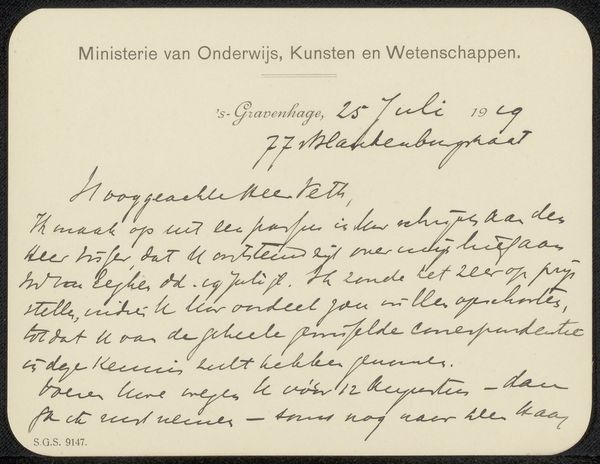 Ministerie van Onderwijs, Kunsten en Wetenschappen.
's-Gravenhage, 25 Juli 1919
77 v Blankenburgstraat
Hooggeachte Heer Veth,
Ik maak op uit een passus in Uw schrijven aan den
Heer Visser dat U ontstemd zijt over mijn brief aan
van Eeghen dd. 19 Juli jl. Ik zoude het zeer op prijs
stellen, indien U Uw oordeel zou willen opschorten,
totdat U van de geheele gewisselde correspondentie
in deze kennis zult hebben genomen.
Voeren Uwe wegen U vóór 12 Augustus — dan
ga ik rust nemen — soms nog naar den Haag
S.G.S. 9147.